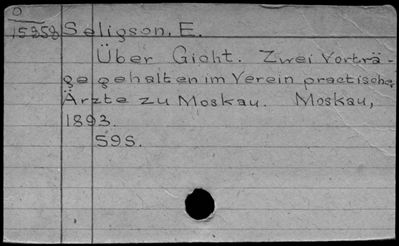 O
15258 Seligson, E.
Über Gicht. Zwei Vorträ-
ge gehalten im Verein practische
Ärzte zu Moskau. Moskau,
1893.
59S.